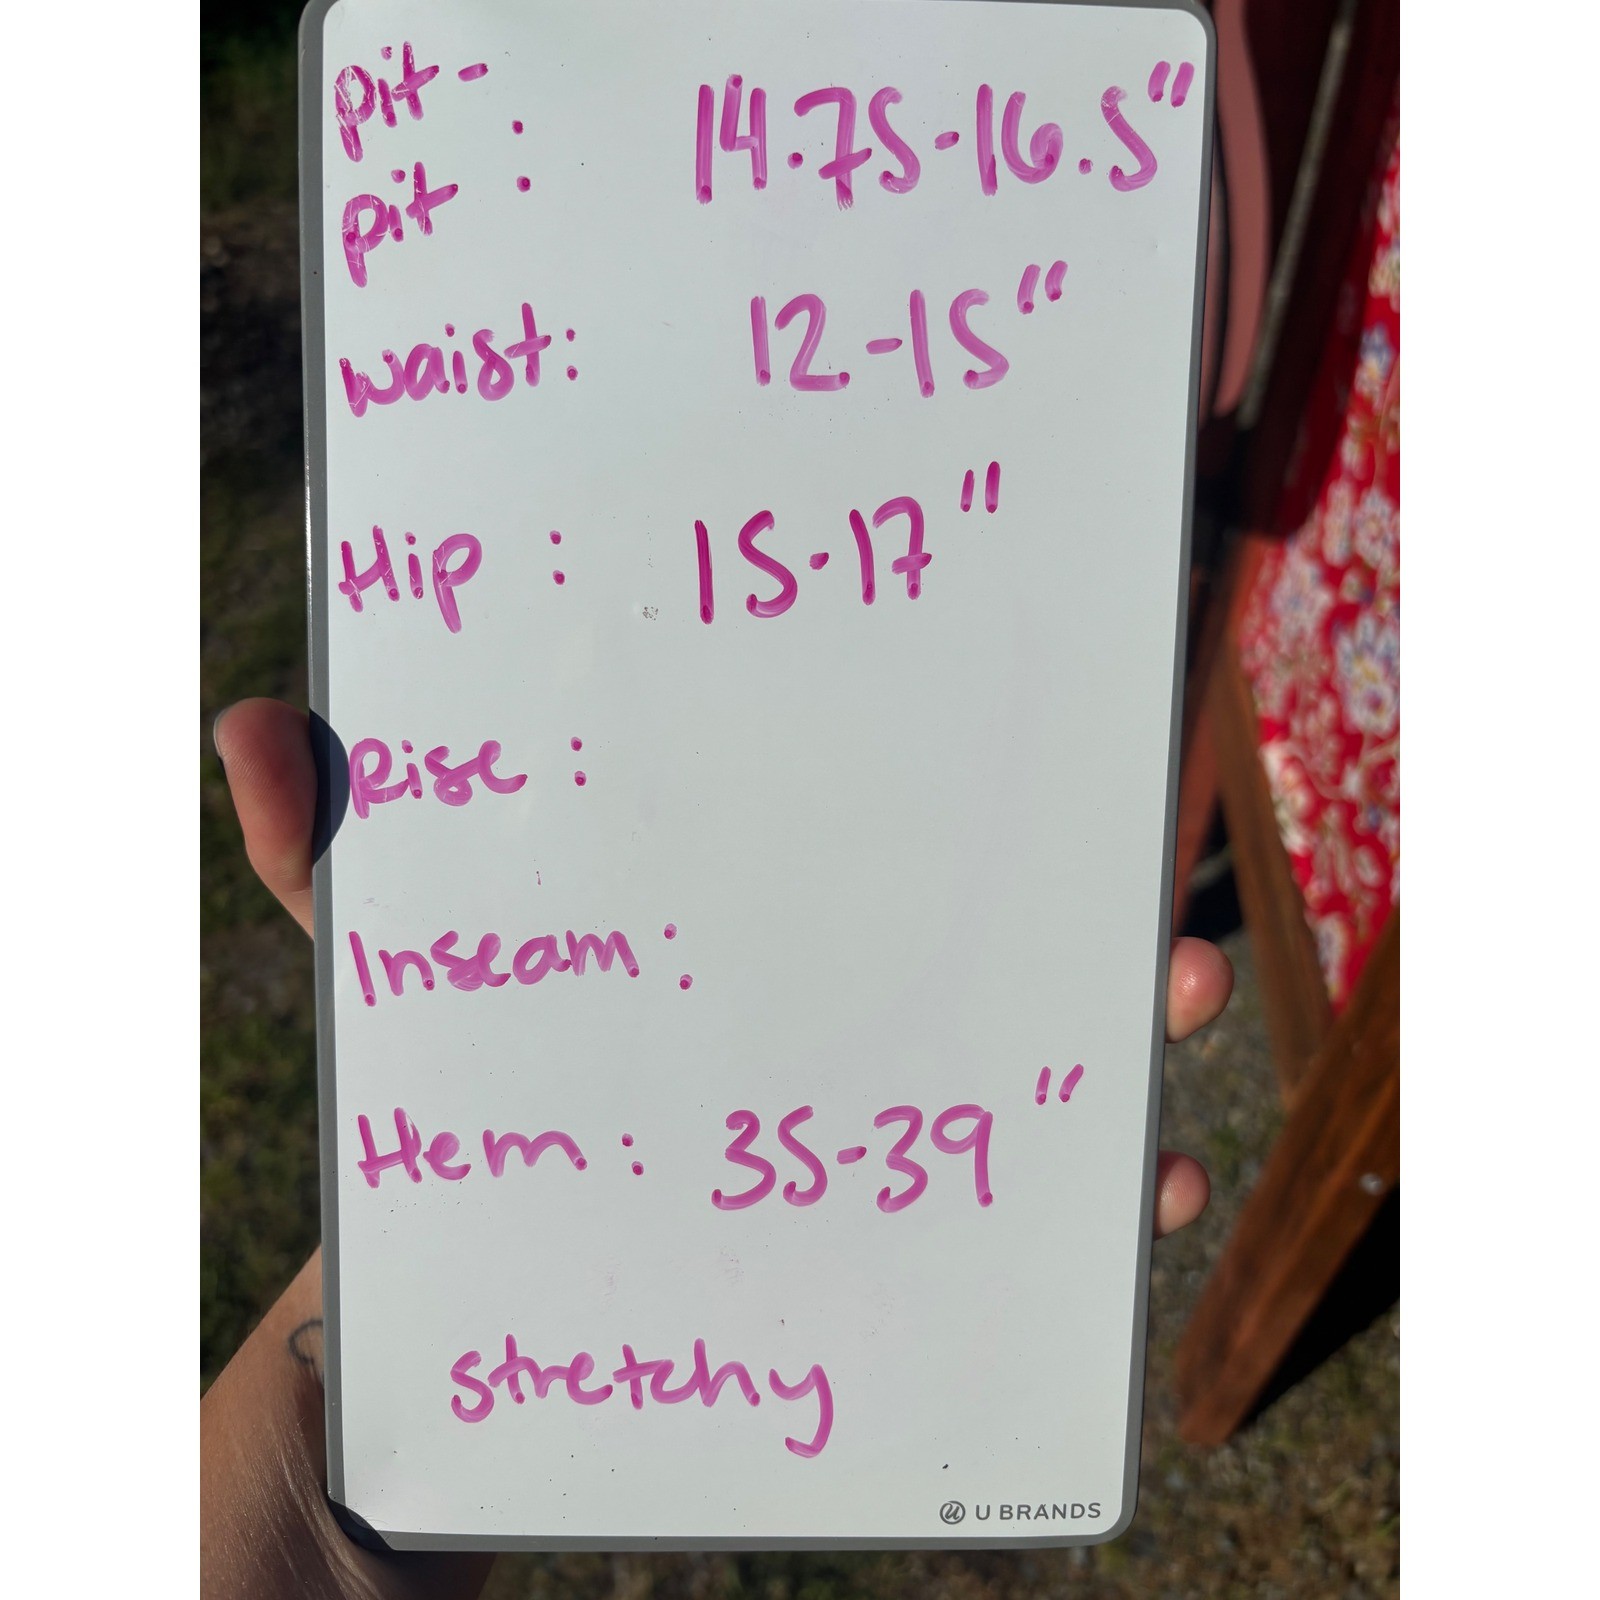 pit-
pit : 14.75-16.5"
waist: 12-15"
Hip : 15-17"
Rise :
Inseam :
Hem : 35-39"
stretchy
U BRANDS